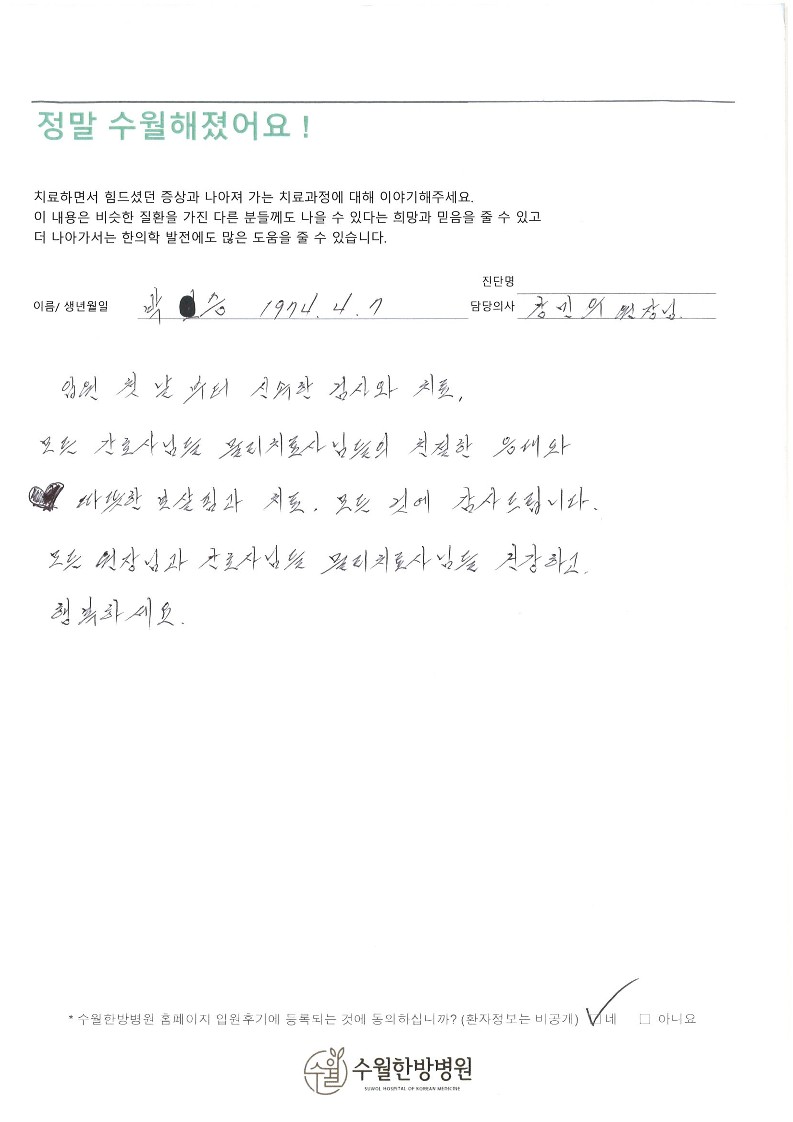 정말 수월해졌어요 !
치료하면서 힘드셨던 증상과 나아져 가는 치료과정에 대해 이야기해주세요.
이 내용은 비슷한 질환을 가진 다른 분들께도 나을 수 있다는 희망과 믿음을 줄 수 있고
더 나아가서는 한의학 발전에도 많은 도움을 줄 수 있습니다.
진단명
이름/ 생년월일 곽 승 1974. 4. 7 담당의사 원장님.
입원 첫 날 부터 신속한 검사와 치료,
모든 간호사님들 물리치료사님들의 친절한 응대와
따뜻한 보살핌과 치료. 모든 것에 감사드립니다.
모든 원장님과 간호사님들 물리치료사님들 건강하고.
행복하세요.
* 수월한방병원 홈페이지 입원후기에 등록되는 것에 동의하십니까? (환자정보는 비공개) ☑네 □ 아니요
수월 수월한방병원
SUWOL HOSPITAL OF KOREAN MEDICINE